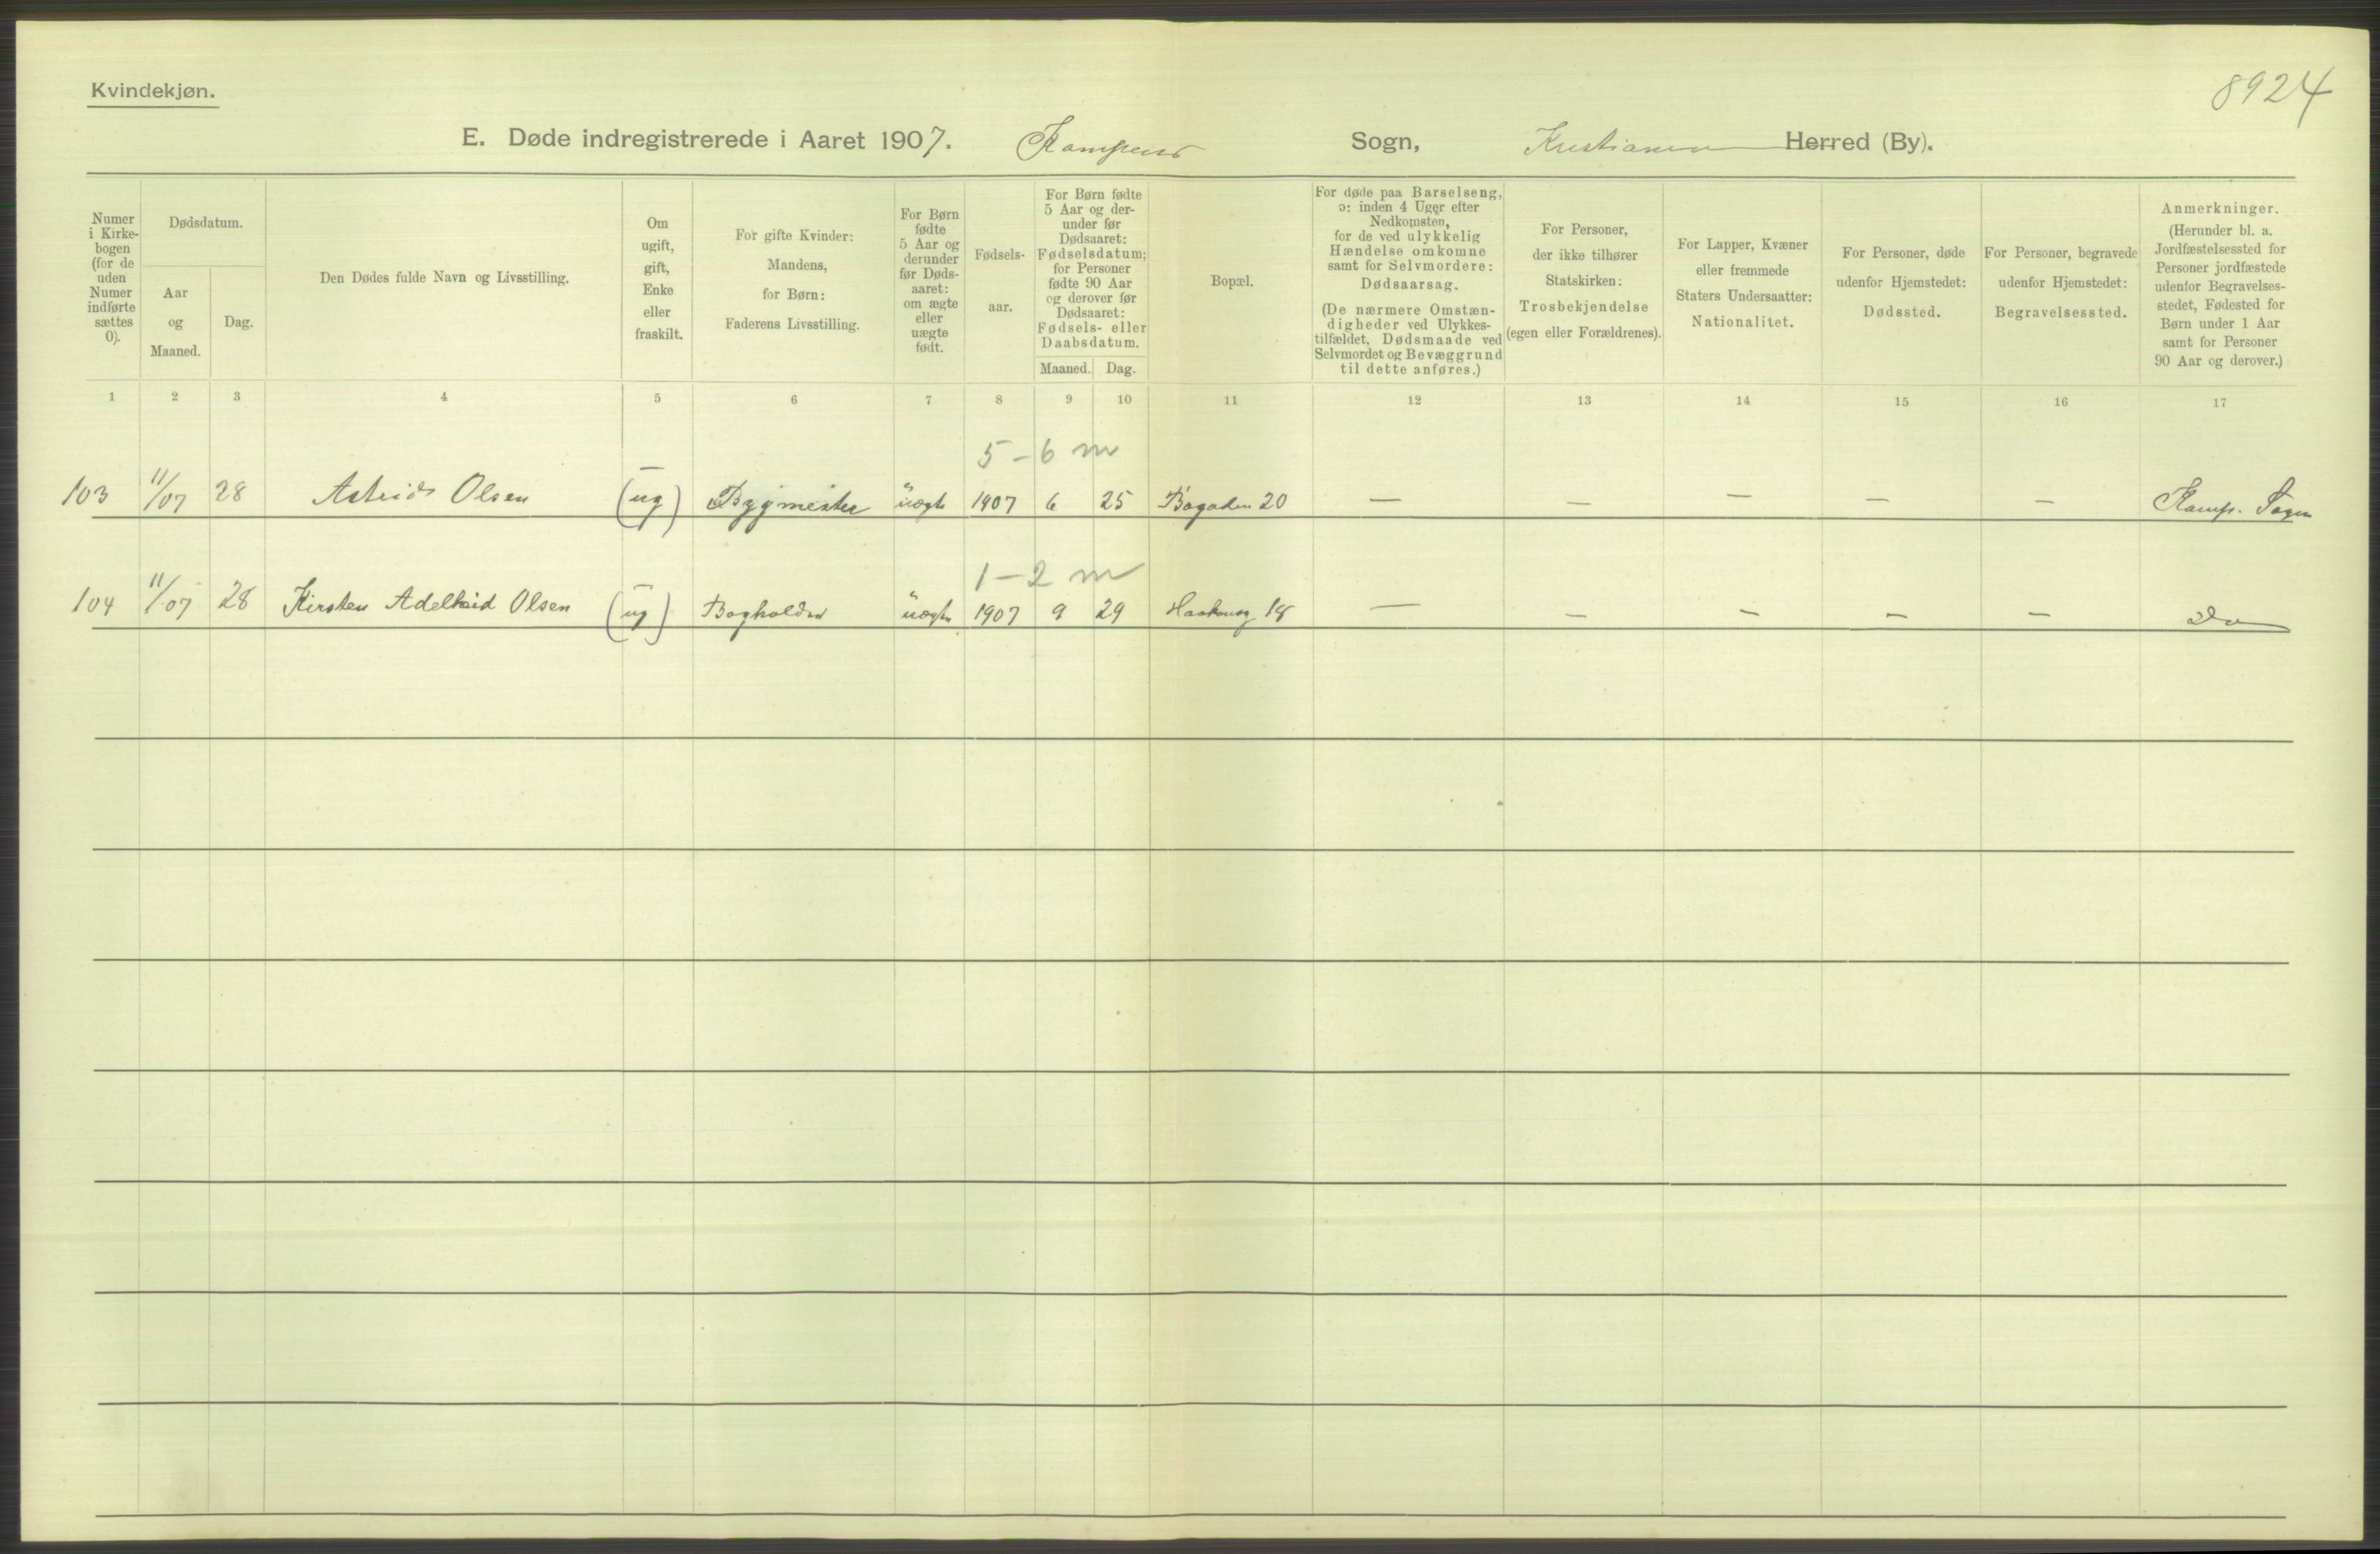 Kvindekjøn.
8924
E. Døde indregistrerede i Aaret 1907. Kampens Sogn, Kristiania Herred (By).
Numer
i Kirke-
bogen
(for de
uden
Numer
indførte
sættes
0).
Dødsdatum.
Aar
og
Maaned.
Dag.
Den Dødes fulde Navn og Livsstilling.
Om
ugift,
gift,
Enke
eller
fraskilt.
For gifte Kvinder:
Mandens,
for Børn:
Faderens Livsstilling.
For Børn
fødte
5 Aar og
derunder
før Døds-
aaret:
om ægte
eller
uægte
født.
Fødsels-
aar.
For Børn fødte
5 Aar og der-
under før
Dødsaaret:
Fødselsdatum;
for Personer
fødte 90 Aar
og derover før
Dødsaaret:
Fødsels- eller
Daabsdatum.
Maaned. Dag.
Bopæl.
For døde paa Barselseng,
ɔ: inden 4 Uger efter
Nedkomsten,
for de ved ulykkelig
Hændelse omkomne
samt for Selvmordere:
Dødsaarsag.
(De nærmere Omstæn-
digheder ved Ulykkes-
tilfældet, Dødsmaade ved
Selvmordet og Bevæggrund
til dette anføres.)
For Personer,
der ikke tilhører
Statskirken:
Trosbekjendelse
(egen eller Forældrenes).
For Lapper, Kvæner
eller fremmede
Staters Undersaatter:
Nationalitet.
For Personer, døde
udenfor Hjemstedet:
Dødssted.
For Personer, begravede
udenfor Hjemstedet:
Begravelsessted.
Anmerkninger.
(Herunder bl. a.
Jordfæstelsessted for
Personer jordfæstede
udenfor Begravelses-
stedet, Fødested for
Børn under 1 Aar
samt for Personer
90 Aar og derover.)
1 2 3 4 5 6 7 8 9 10 11 12 13 14 15 16 17
5 - 6 m
103 11/07 28 Astrid Olsen (ug) Bygmester uægte 1907 6 25 Bøgaden 20 — — — — — Kamp. Sogn
1 - 2 m
104 11/07 28 Kirsten Adelheid Olsen (ug) Bogholder uægte 1907 9 29 18 — — — — — Do